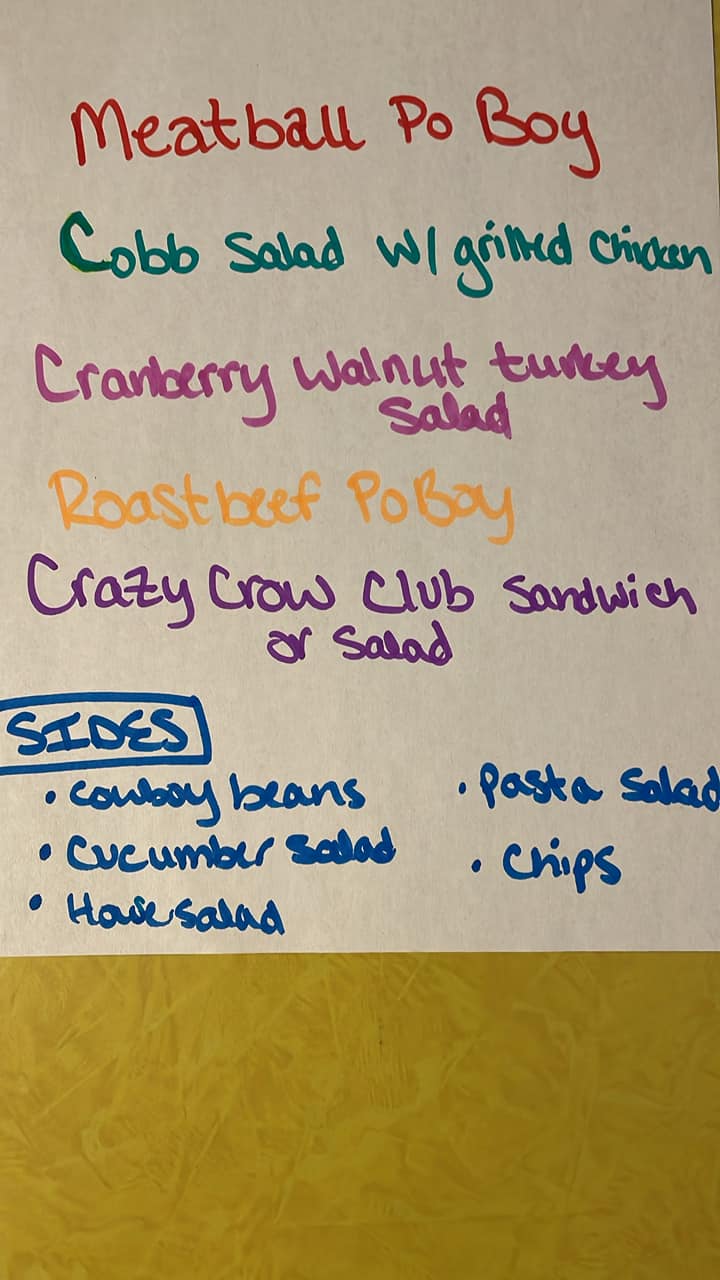 Meatball Po Boy
Cobb Salad W/ grilled Chicken
Cranberry Walnut turkey
Salad
Roast beef Po Boy
Crazy Crow Club Sandwich
or Salad
SIDES
• Cowboy beans
• Pasta Salad
• Cucumber Salad
• Chips
• House Salad